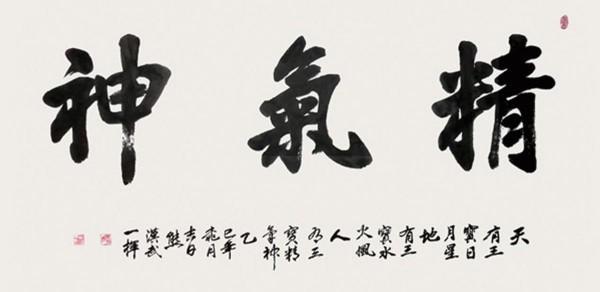 精氣神
天有三寶日月星地有三寶水火風人有三寶精氣神乙巳年月吉日熊漢武一揮